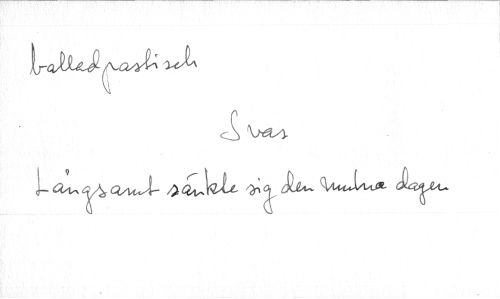 balladpastisch
Svas
Långsamt sänkte sig den mulna dagen